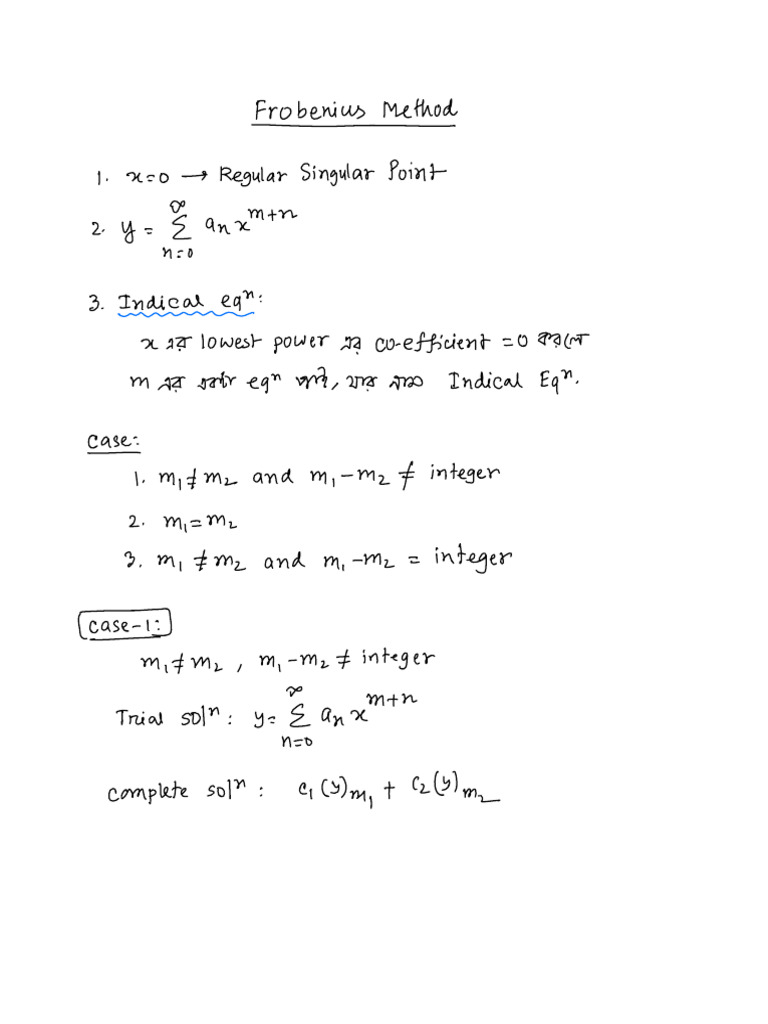 Frobenius Method
1. x=0 → Regular Singular Point
2. y = ∑_{n=0}^{∞} aₙ x^{m+n}
3. Indical eqⁿ:
x এর lowest power এর co-efficient = 0 করলে
m এর একটা eqⁿ পাই, যার নাম Indical Eqⁿ.
Case:
1. m₁ ≠ m₂ and m₁ - m₂ ≠ integer
2. m₁ = m₂
3. m₁ ≠ m₂ and m₁ - m₂ = integer
Case-1:
m₁ ≠ m₂ , m₁ - m₂ ≠ integer
Trial solⁿ: y = ∑_{n=0}^{∞} aₙ x^{m+n}
Complete solⁿ: c₁(y)_{m₁} + c₂(y)_{m₂}